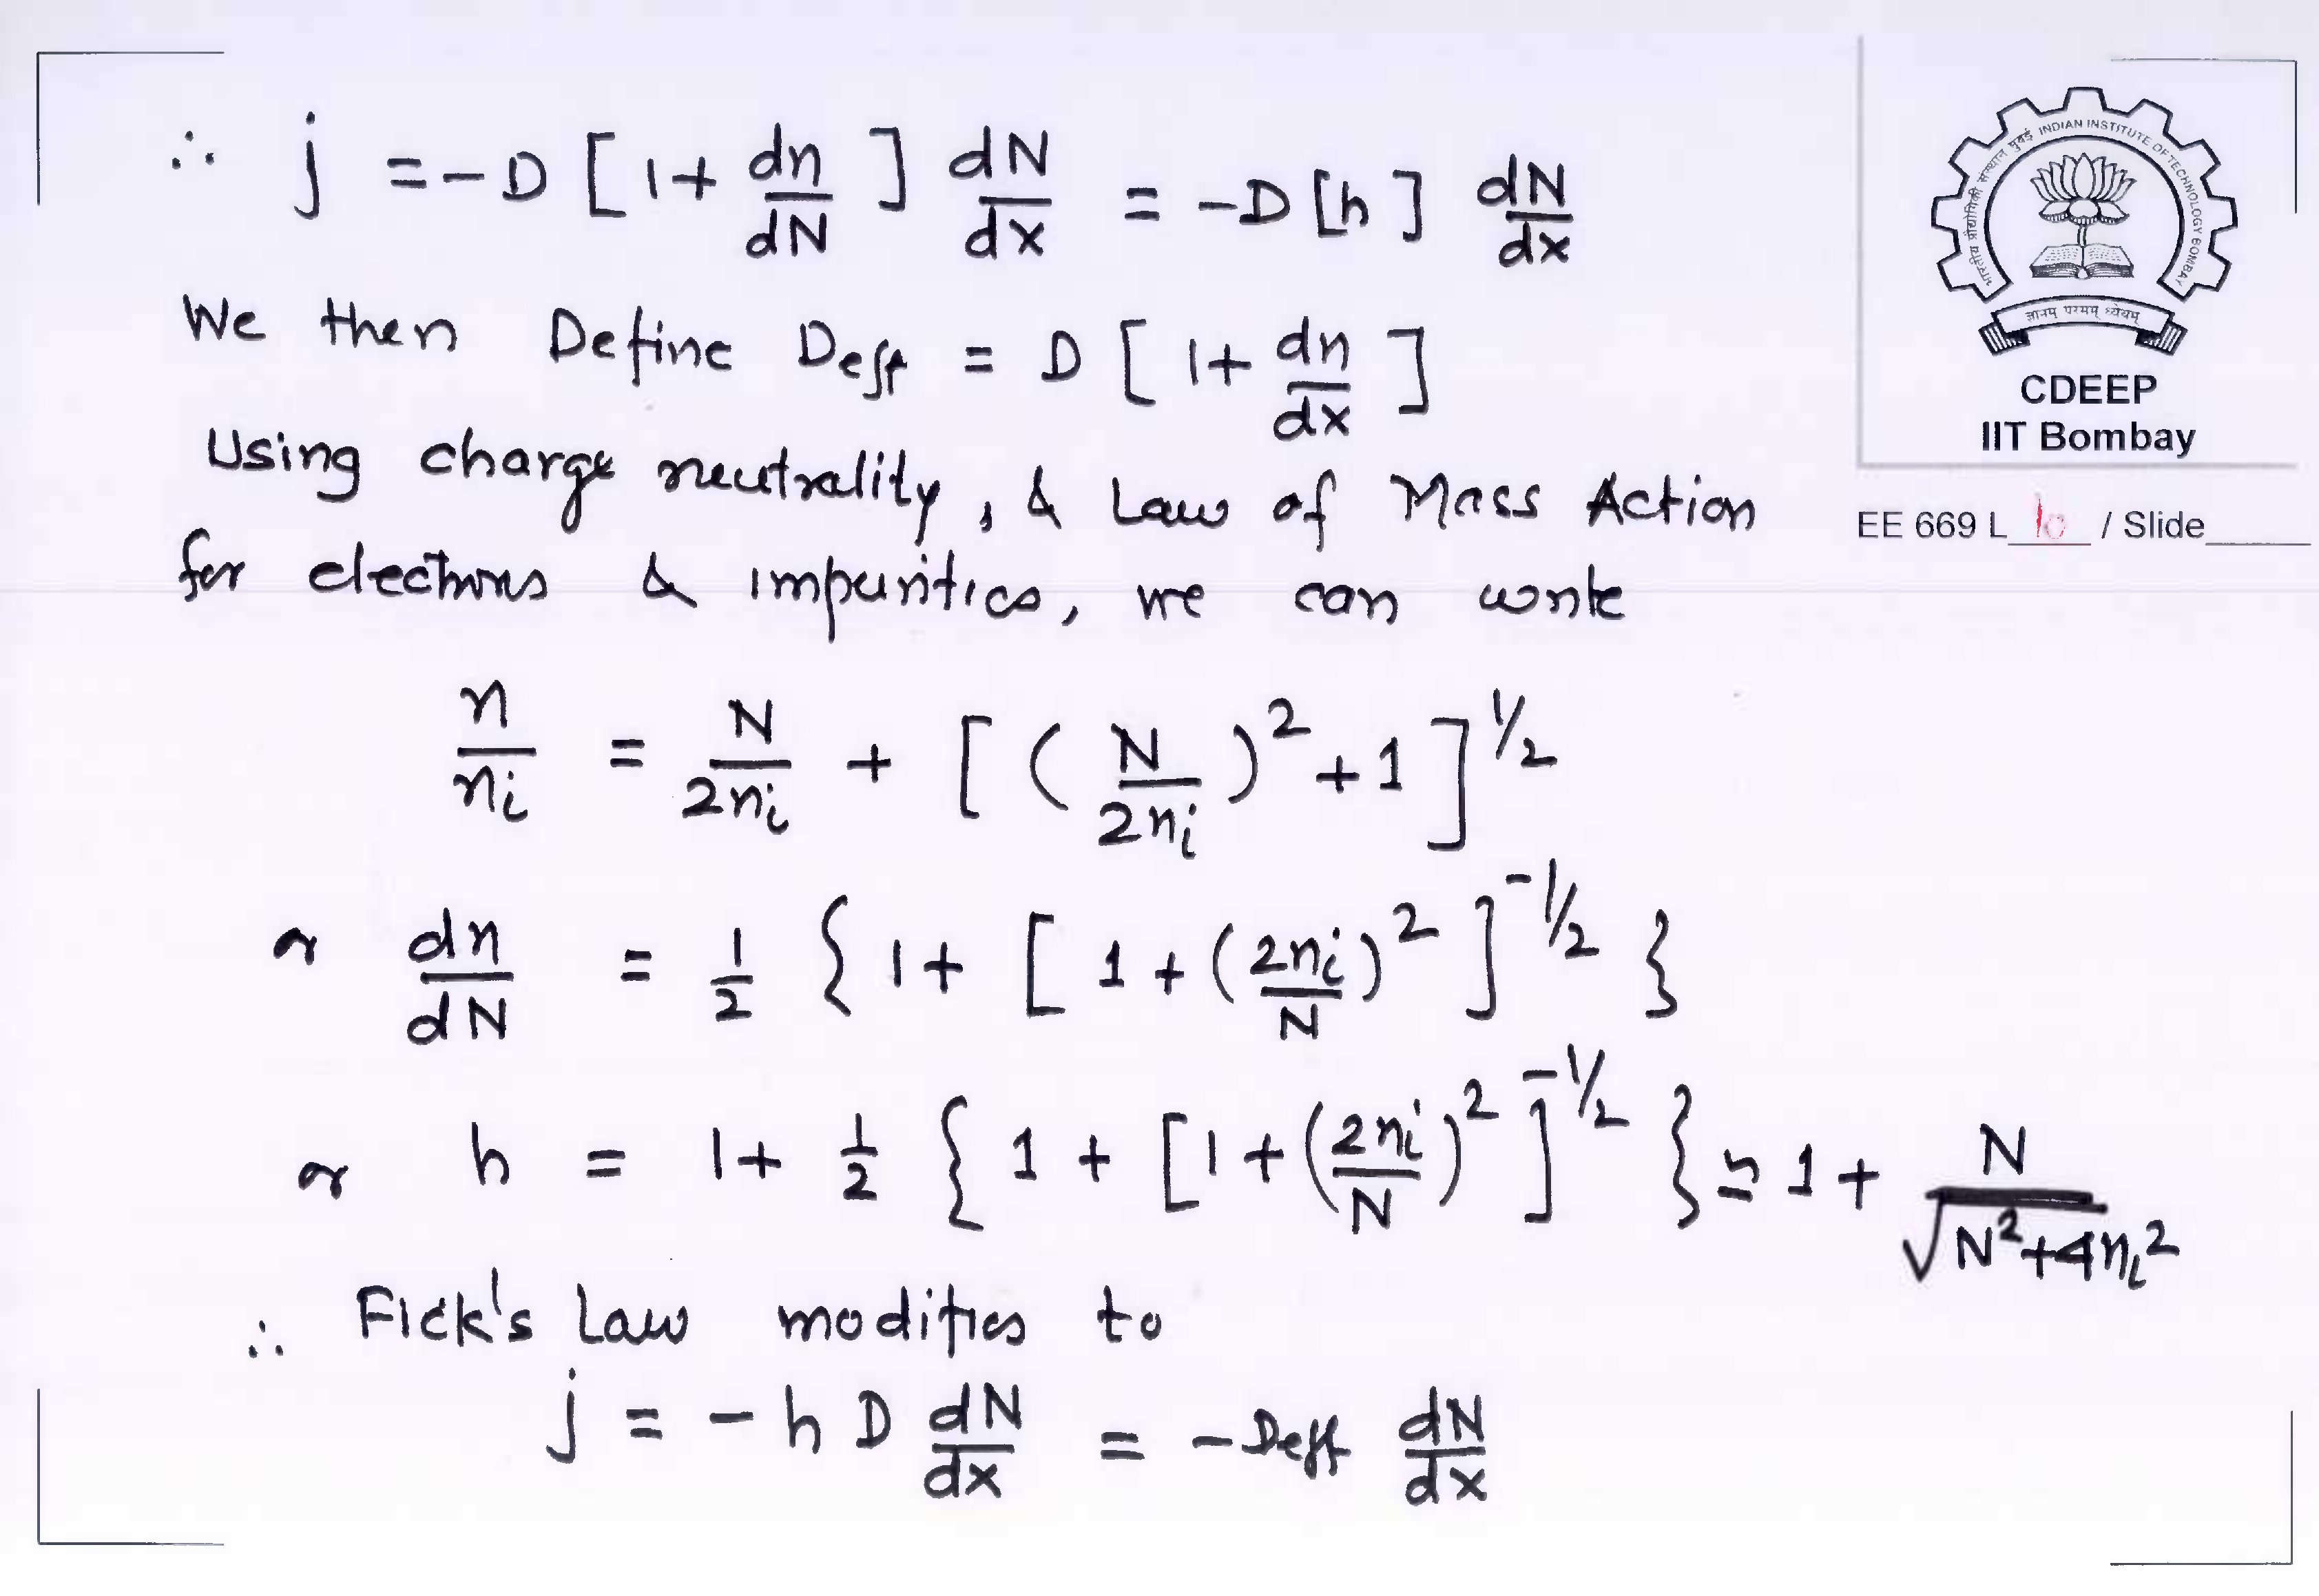 ∴ j = -D [ 1 + dn/dN ] dN/dx = -D [h] dN/dx
We then Define Deff = D [ 1 + dn/dx ]
Using charge neutrality, & Law of Mass Action
for electrons & impurities, we can write
n/ni = N/2ni + [ ( N/2ni )^2 + 1 ]^1/2
or dn/dN = 1/2 { 1 + [ 1 + ( 2ni/N )^2 ]^-1/2 }
or h = 1 + 1/2 { 1 + [ 1 + ( 2ni/N )^2 ]^-1/2 } ≃ 1 + N/√(N^2 + 4ni^2)
∴ Fick's Law modifies to
j = - h D dN/dx = - Deff dN/dx
भारतीय प्रौद्योगिकी संस्थान मुंबई INDIAN INSTITUTE OF TECHNOLOGY BOMBAY
ज्ञानम् परमम् ध्येयम्
CDEEP
IIT Bombay
EE 669 L 10 / Slide